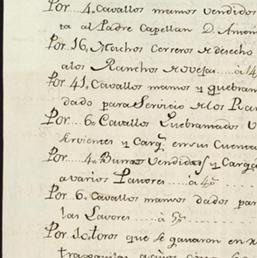 Por 4. Cavallos mansos vendidos
ta al Padre Capellan D. Anton
Por 16. Machos Cerreros de desecho
a los Ranchos de oveja ... à 14
Por 41. Cavallos mansos y quebran
dado para Servicio de los Ra
Por 6. Cavallos Quebramados V
Sirvientes y Carg. en sus Cuenta
Por 4. Burros Vendidos y Carga
a varios Pastores ..... à 4p.
Por 6. Cavallos mansos dados par
las Lavores ..... à 5p.
Por 10. toros que se ganaron en